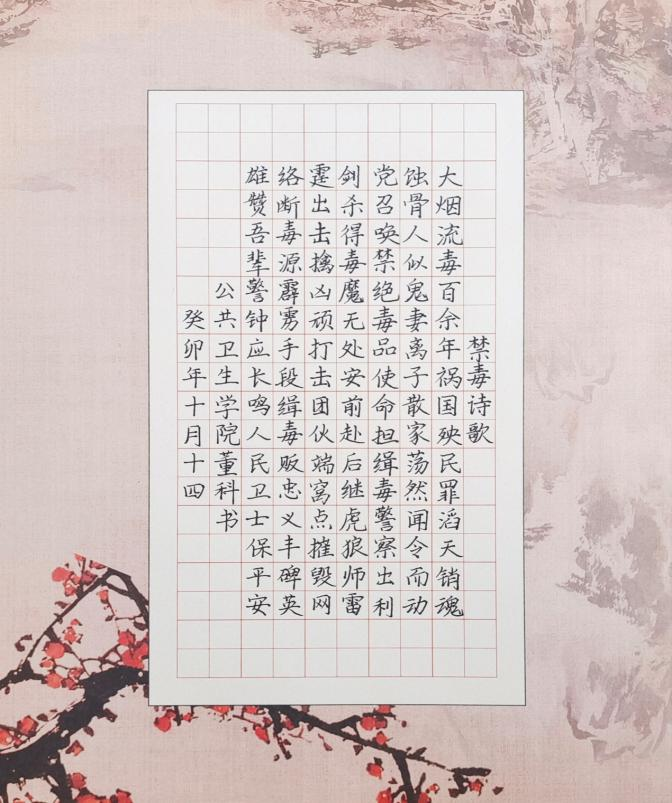 禁毒诗歌
大烟流毒百余年祸国殃民罪滔天销魂
蚀骨人似鬼妻离子散家荡然闻令而动
党召唤禁绝毒品使命担缉毒警察出利
剑杀得毒魔无处安前赴后继虎狼师雷
霆出击擒凶顽打击团伙端窝点摧毁网
络断毒源霹雳手段缉毒贩忠义丰碑英
雄赞吾辈警钟应长鸣人民卫士保平安
公共卫生学院董科书
癸卯年十月十四